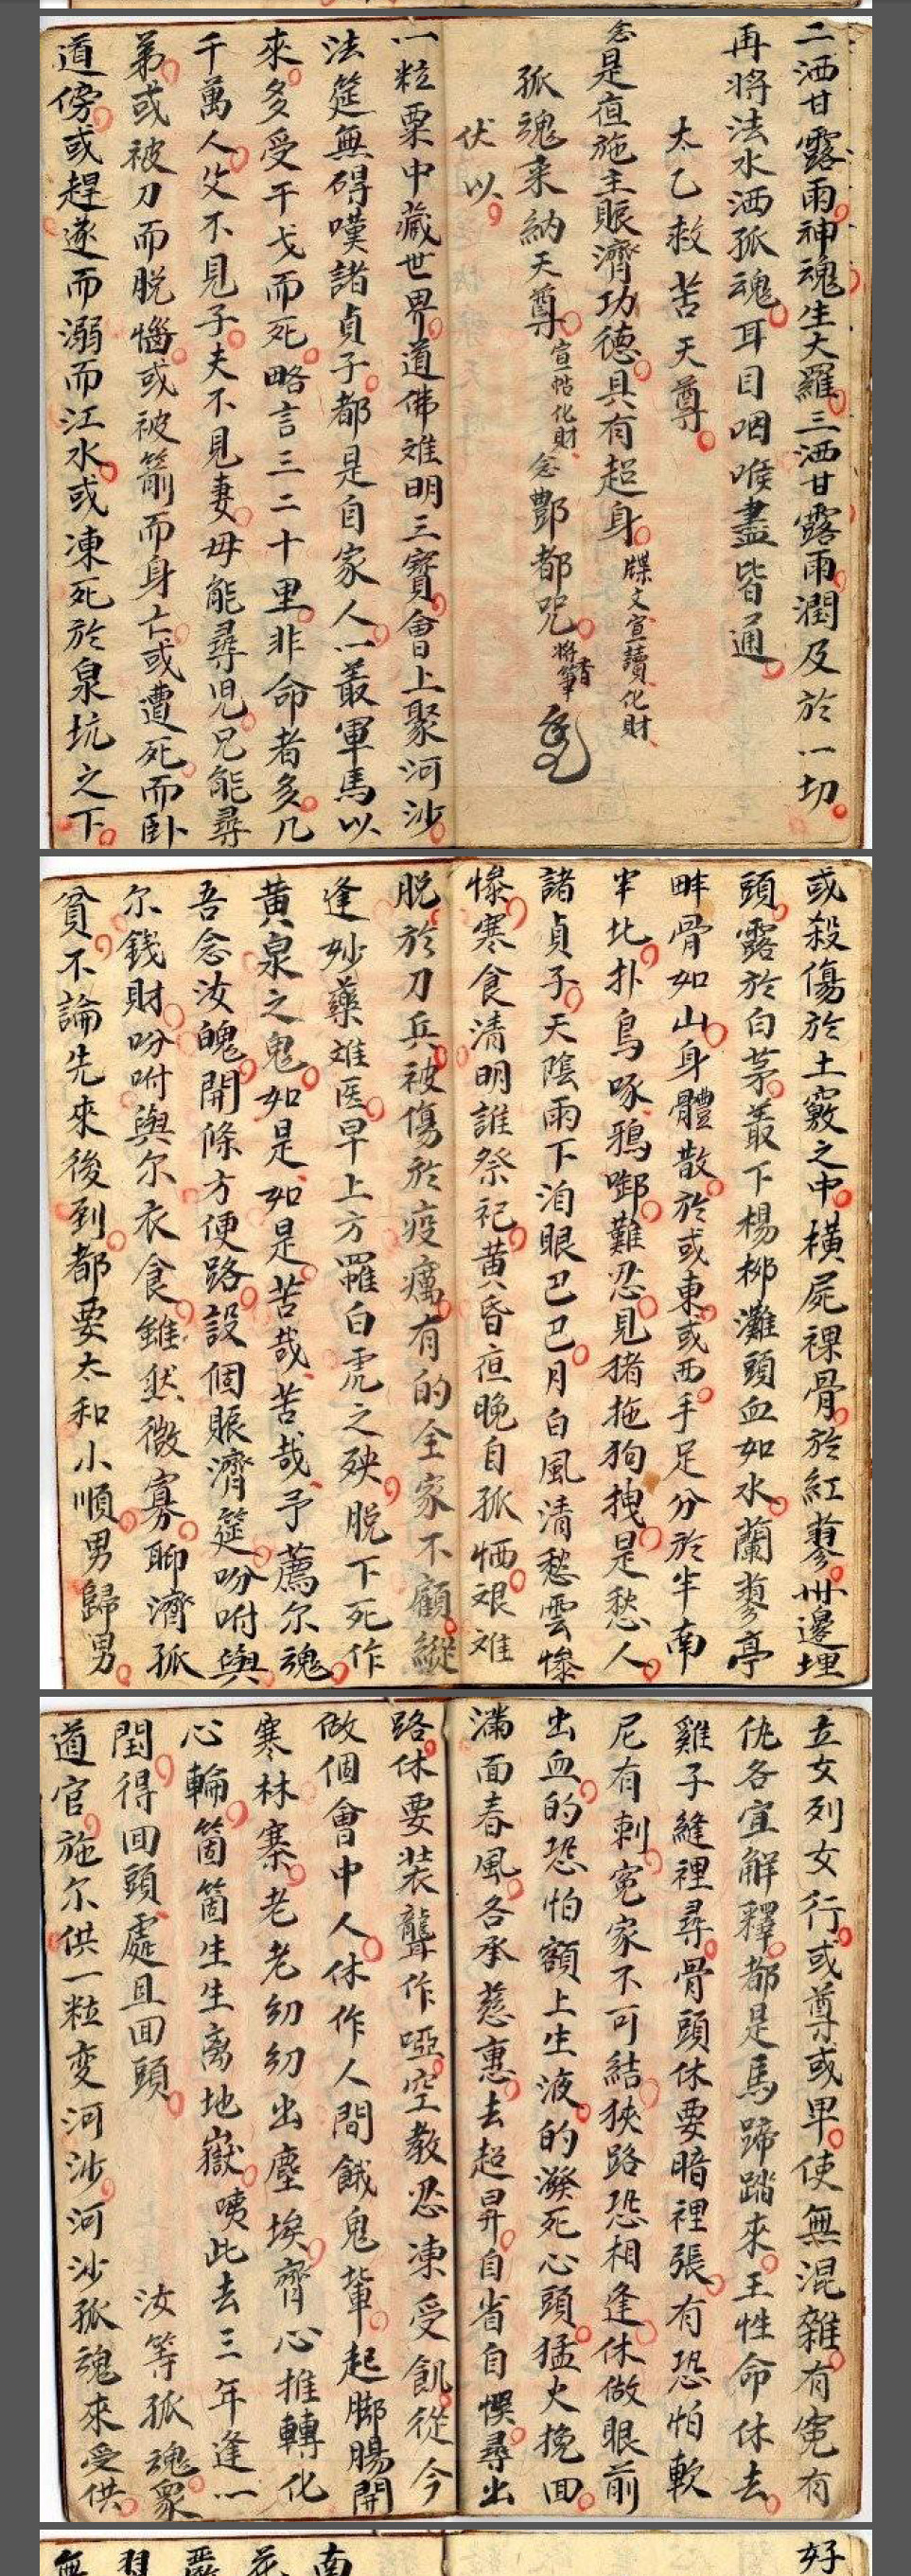 二洒甘露雨神魂生大羅三洒甘露雨潤及於一切
再將法水洒孤魂耳目咽喉盡皆通
太乙救苦天尊
念是夜施主賑濟功德具有超身牒文宣讀化財
孤魂来納天尊宣帖化財念酆都咒將筆書
伏以
一粒粟中藏世界道佛难明三寳會上聚河沙
法筵無碍嘆諸貞子都是自家人一叢軍馬以
來多受干戈而死略言三二十里非命者多几
千萬人父不見子夫不見妻母能尋児兄能尋
弟或被刀而脱惱或被箭而身亡或遭死而卧
道傍或趕逐而溺而江水或凍死於泉坑之下
或殺傷於土竅之中横屍裸骨於紅蓼丗邊埋
頭露於白茅叢下楊柳灘頭血如水蘭蓼亭
畔骨如山身體散於或東或西手足分於半南
半北扑鳥啄鴉啣難忍見猪拖狗拽是愁人
諸貞子天陰雨下泪眼巴巴月白風清愁雲慘
慘寒食清明誰祭祀黄昏夜晚自孤恓艰难
脱於刀兵被傷於疫癘有的全家不顧縱
逢妙藥难医早上方羅白虎之殃脱下死作
黄泉之鬼如是如是苦哉苦哉予薦尔魂
吾念汝魄開條方便路設個賑濟筵吩咐與
尔錢財吩咐與尔衣食雖然微寡聊濟孤
貧不論先來後到都要太和小順男歸男
立女列女行或尊或卑使無混雜有寃有
仇各宜解釋都是馬蹄踏來王性命休去
雞子縫裡尋骨頭休要暗裡張有恐怕軟
尼有刺寃家不可結狹路恐相逢休做眼前
出血的恐怕額上生液的潑死心頭猛火挽回
滿面春風各承慈惠去超昇自省自悮尋出
路休要装聾作啞空教忍凍受飢從今
做個會中人休作人間餓鬼軰起脚腸開
寒林寨老老幼幼出塵埃齊心推轉化
心輪箇箇生生离地嶽咦此去三年逢一
閏得回頭處且回頭 汝等孤魂衆
道官施尔供一粒变河沙河沙孤魂來受供
好
南